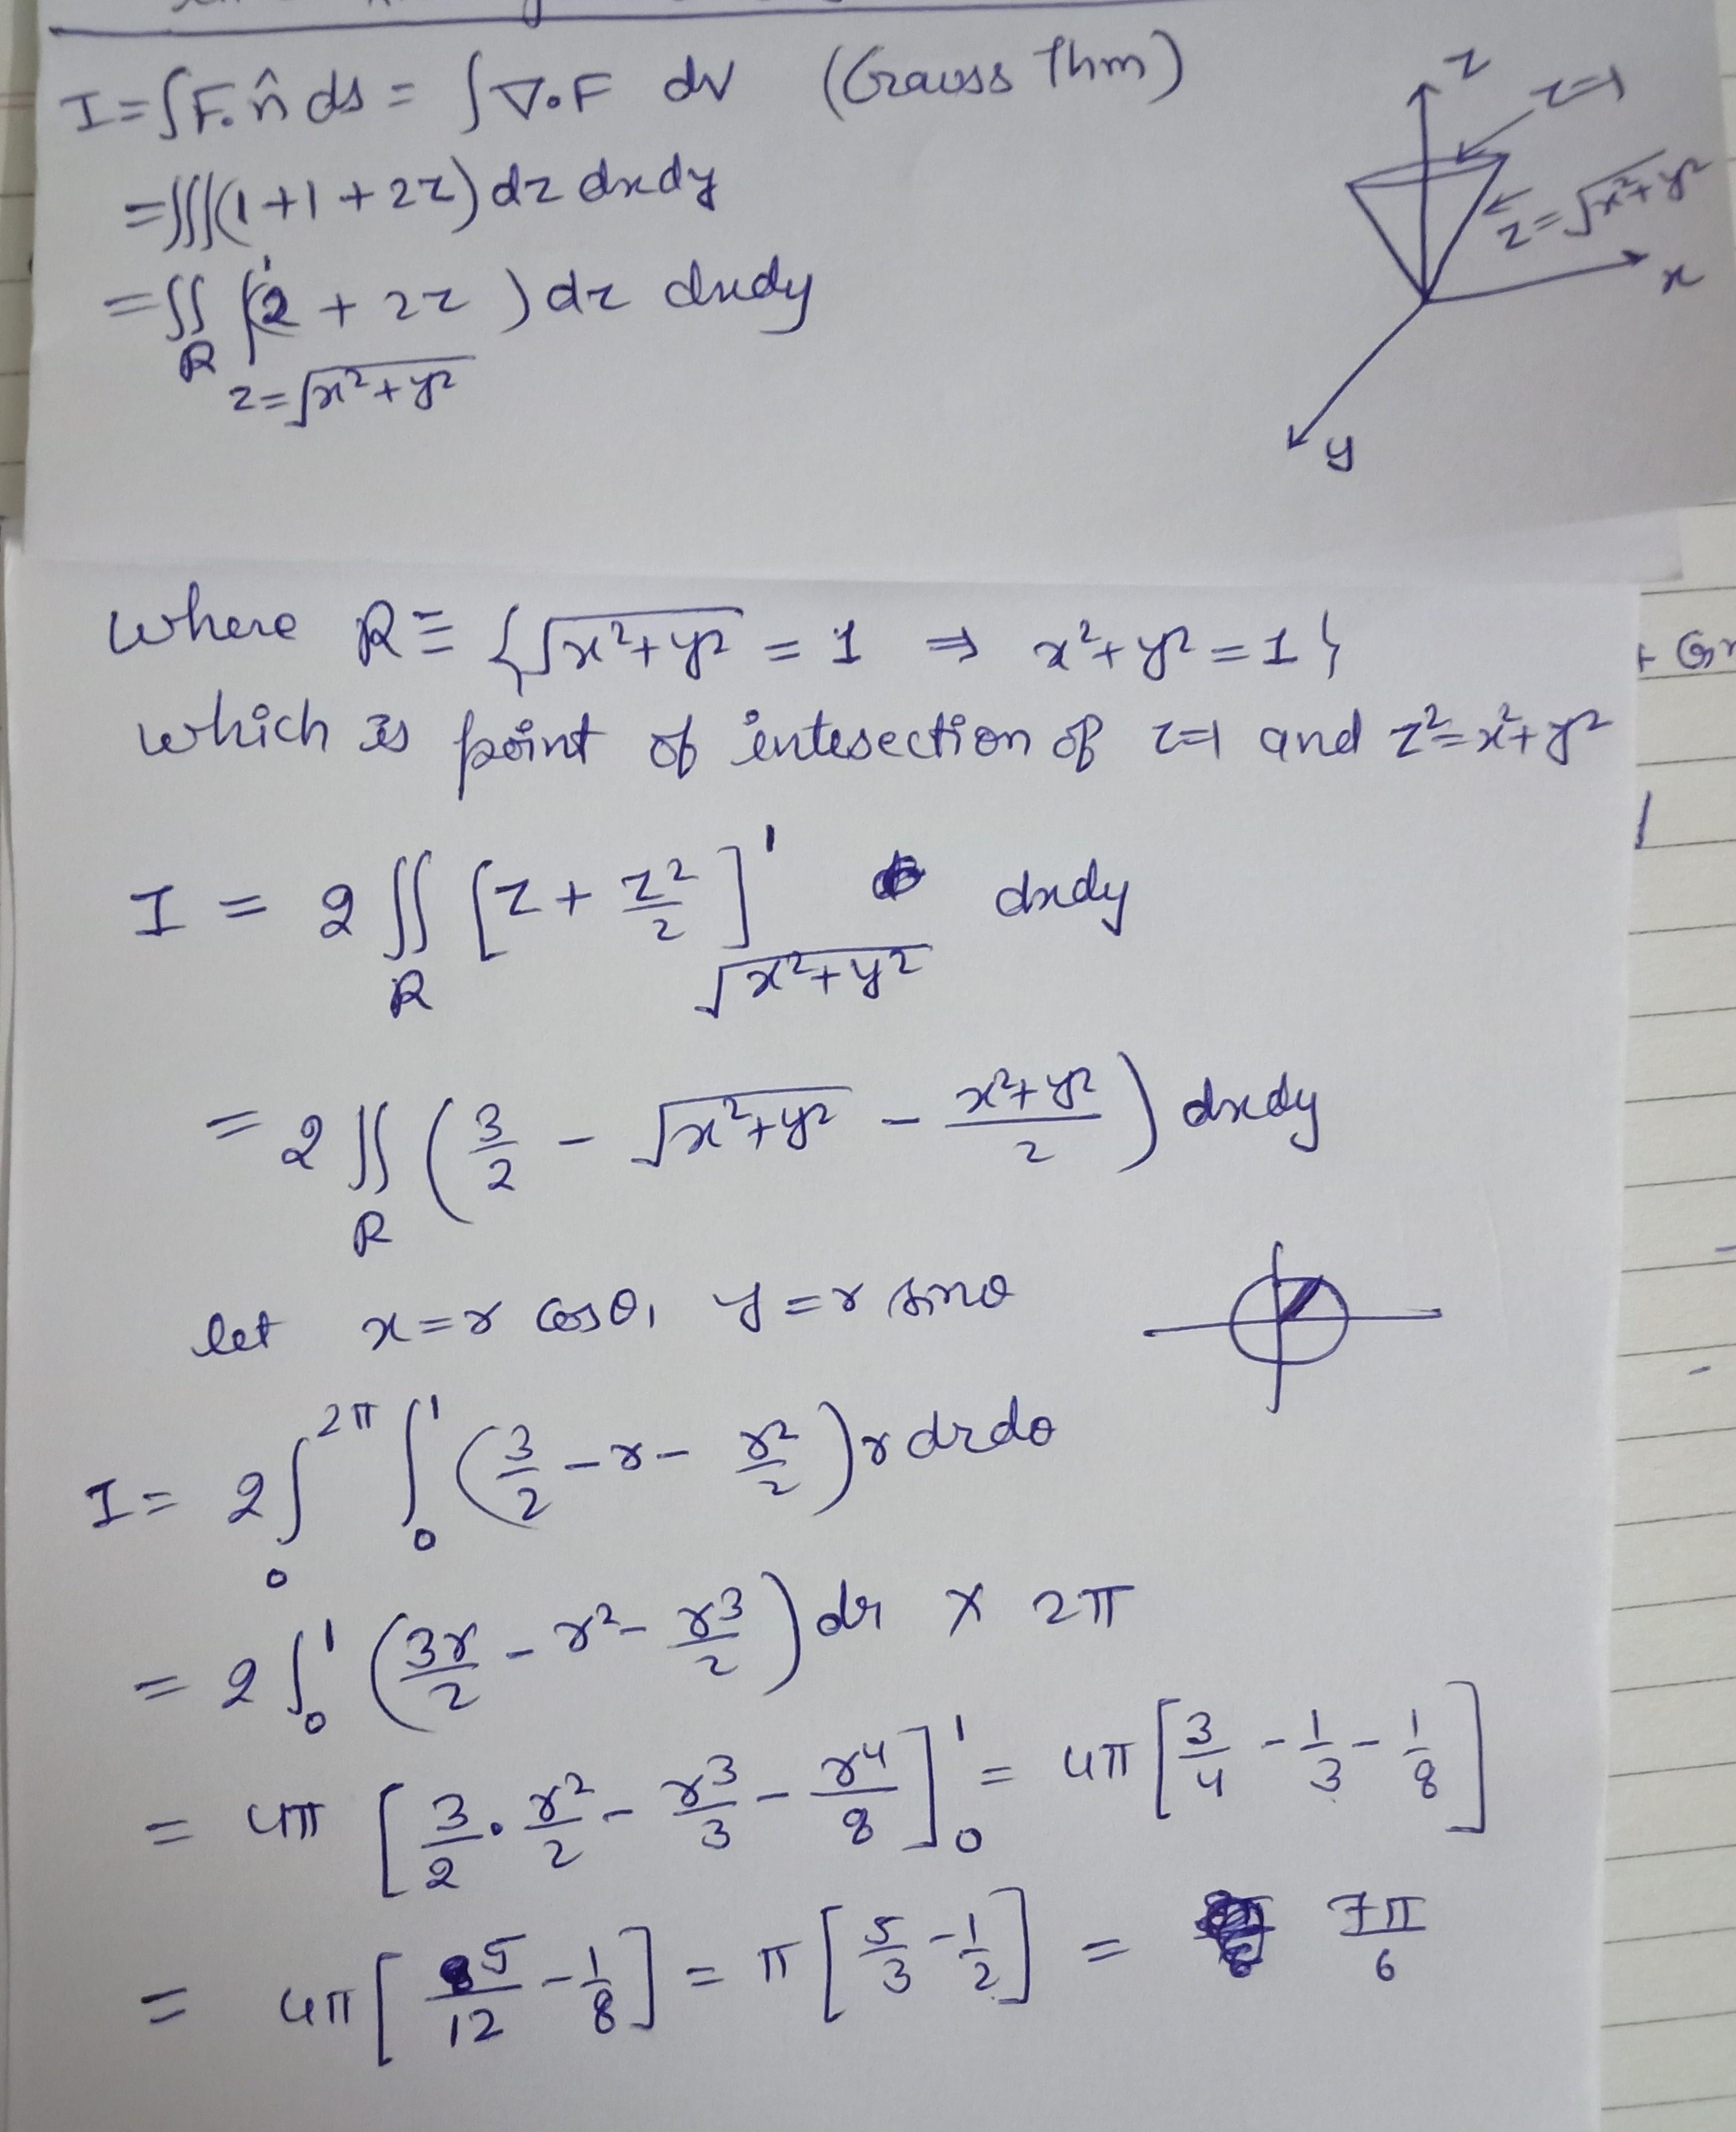 I = ∫F.n̂ ds = ∫∇.F dv (Gauss Thm)
= ∭(1+1+2z) dz dxdy
= ∬_R ∫_{z=√(x²+y²)}^1 (2 + 2z) dz dxdy
z
z=1
z=√(x²+y²)
x
y
where R ≡ {√(x²+y²) = 1 ⇒ x²+y² = 1}
which is point of intesection of z=1 and z²=x²+y²
I = 2 ∬_R [z + z²/2]_{√(x²+y²)}^1 dxdy
= 2 ∬_R (3/2 - √(x²+y²) - (x²+y²)/2) dxdy
let x=r cosθ, y=r sinθ
I = 2 ∫_0^{2π} ∫_0^1 (3/2 - r - r²/2) r drdθ
= 2 ∫_0^1 (3r/2 - r² - r³/2) dr × 2π
= 4π [3/2 . r²/2 - r³/3 - r⁴/8]_0^1 = 4π [3/4 - 1/3 - 1/8]
= 4π [5/12 - 1/8] = π [5/3 - 1/2] = 7π/6